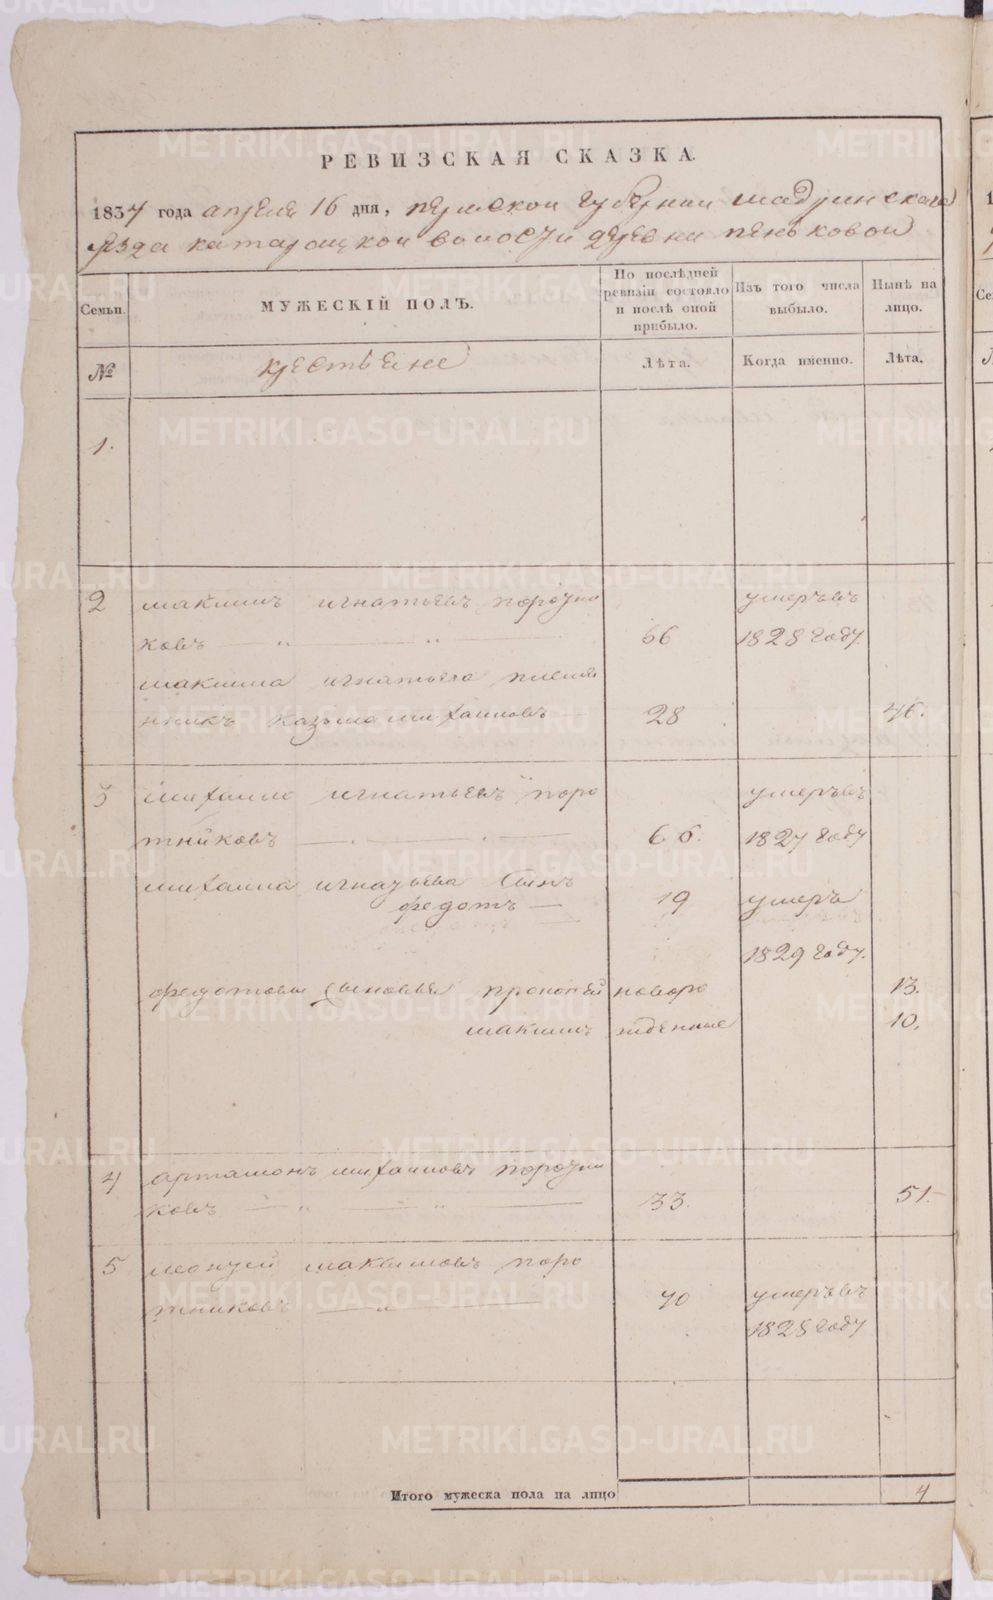 РЕВИЗСКАЯ СКАЗКА.
1834 года апреля 16 дня, пермской губернии шадринскаго
уезда катарацкой волости деревни пеньковой
Семьи.
МУЖЕСКІЙ ПОЛЪ.
По послѣдней ревизіи состояло и послѣ оной прибыло.
Изъ того числа выбыло.
Нынѣ на лицо.
№
крестьяне
Лѣта.
Когда именно.
Лѣта.
1.
2 максимъ игнатьевъ поротни умеръ въ
ковъ 66 1828 году
максима игнатьева племя
нникъ казьма михаиловъ 28 46.
3 михаило игнатьевъ поро умеръ въ
тниковъ 66. 1827 году
михаила игнатьева сынъ
федотъ 19 умеръ
1829 году.
федотовы сыновья прокопей новоро 13.
максимъ жденные 10.
4 артамонъ михаиловъ поротни
ковъ 33. 51.
5 леонтей максимовъ поро
тниковъ 70 умеръ въ
1828 году
Итого мужеска пола на лицо 4
METRIKI.GASO-URAL.RU